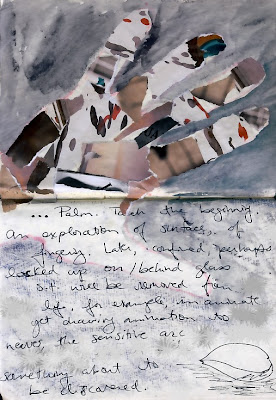 ... Palm. ... the beginning.
An exploration of surface, of
fingery ... confined perhaps
locked up on/behind glass
... will be removed from
life, for example, inanimate
get drawing animation to
... the sensitive arc,
something about to
be discovered.